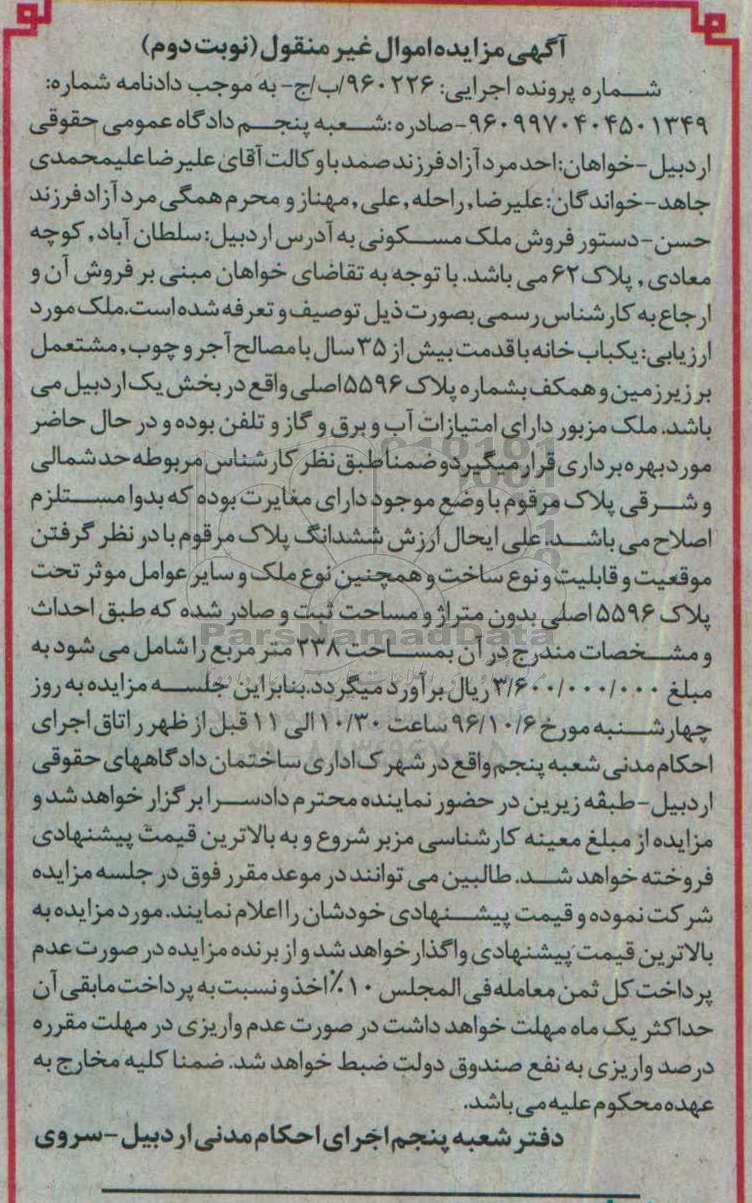 آگهی مزایده اموال غیر منقول (نوبت دوم)
شماره پرونده اجرایی: ۹۶۰۲۲۶/ب/ج- به موجب دادنامه شماره:
۹۶۰۹۹۷۰۴۰۴۵۰۱۳۴۹-صادره:شعبه پنجم دادگاه عمومی حقوقی
اردبیل-خواهان:احد مرد آزاد فرزند صمد با وکالت آقای علیرضا علیمحمدی
جاهد-خواندگان:علیرضا, راحله, علی, مهناز و محرم همگی مرد آزاد فرزند
حسن-دستور فروش ملک مسکونی به آدرس اردبیل:سلطان آباد, کوچه
معادی, پلاک ۶۲ می باشد. با توجه به تقاضای خواهان مبنی بر فروش آن و
ارجاع به کارشناس رسمی بصورت ذیل توصیف و تعرفه شده است.ملک مورد
ارزیابی: یکباب خانه با قدمت بیش از ۳۵ سال با مصالح آجر و چوب, مشتمل
بر زیرزمین و همکف بشماره پلاک ۵۵۹۶ اصلی واقع در بخش یک اردبیل می
باشد. ملک مزبور دارای امتیازات آب و برق و گاز و تلفن بوده و در حال حاضر
مورد بهره برداری قرار میگیرد و ضمنا طبق نظر کارشناس مربوطه حد شمالی
و شرقی پلاک مرقوم با وضع موجود دارای مغایرت بوده که بدوا مستلزم
اصلاح می باشد. علی ایحال ارزش ششدانگ پلاک مرقوم با در نظر گرفتن
موقعیت و قابلیت و نوع ساخت و همچنین نوع ملک و سایر عوامل موثر تحت
پلاک ۵۵۹۶ اصلی بدون متراژ و مساحت ثبت و صادر شده که طبق احداث
و مشخصات مندرج در آن بمساحت ۲۳۸ متر مربع را شامل می شود به
مبلغ ۳/۶۰۰/۰۰۰/۰۰۰ ریال برآورد میگردد.بنابراین جلسه مزایده به روز
چهارشنبه مورخ ۹۶/۱۰/۶ ساعت ۱۰/۳۰ الی ۱۱ قبل از ظهر ر اتاق اجرای
احکام مدنی شعبه پنجم واقع در شهرک اداری ساختمان دادگاههای حقوقی
اردبیل-طبقه زیرین در حضور نماینده محترم دادسرا برگزار خواهد شد و
مزایده از مبلغ معینه کارشناسی مزبر شروع و به بالاترین قیمت پیشنهادی
فروخته خواهد شد. طالبین می توانند در موعد مقرر فوق در جلسه مزایده
شرکت نموده و قیمت پیشنهادی خودشان را اعلام نمایند. مورد مزایده به
بالاترین قیمت پیشنهادی واگذار خواهد شد و از برنده مزایده در صورت عدم
پرداخت کل ثمن معامله فی المجلس ۱۰٪ اخذ و نسبت به پرداخت مابقی آن
حداکثر یک ماه مهلت خواهد داشت در صورت عدم واریزی در مهلت مقرره
درصد واریزی به نفع صندوق دولت ضبط خواهد شد. ضمنا کلیه مخارج به
عهده محکوم علیه می باشد.
دفتر شعبه پنجم اجرای احکام مدنی اردبیل-سروی
ParsNamadData